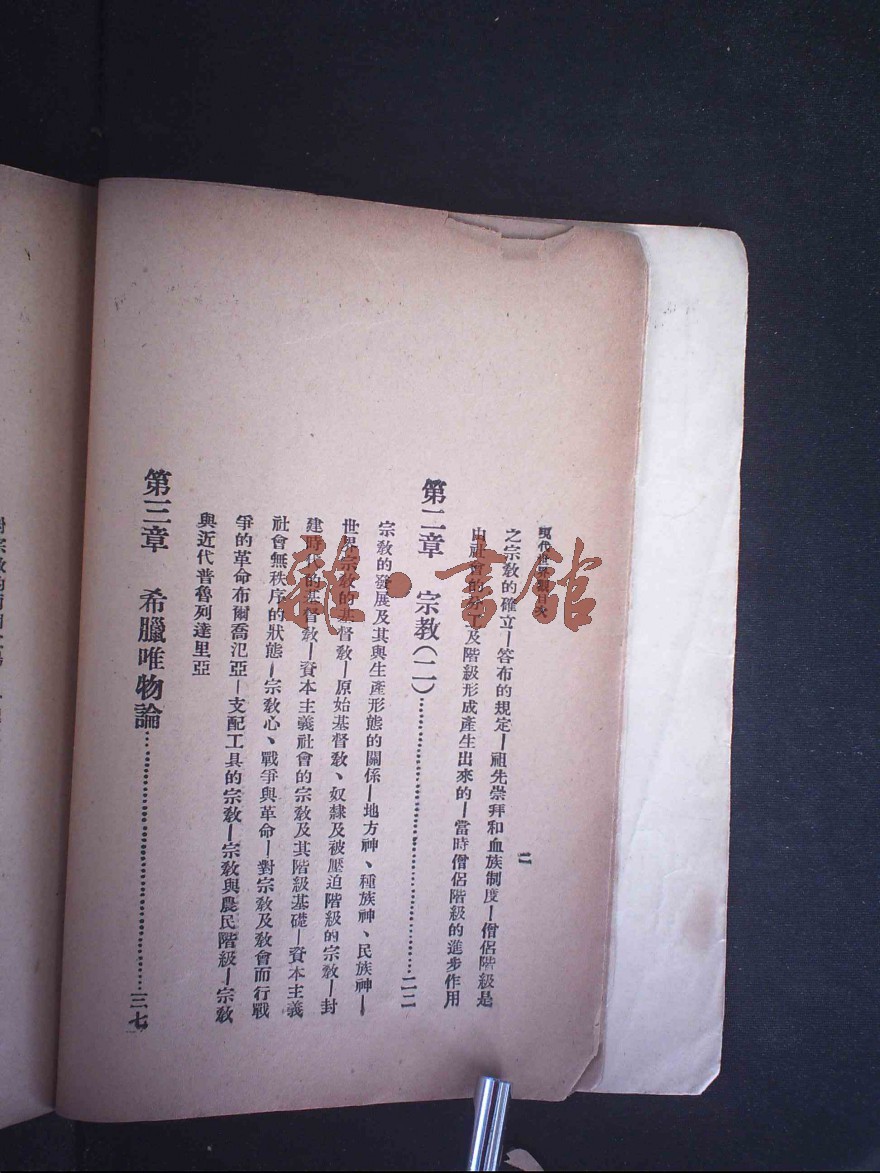 現代世界觀目次
二
之宗教的確立—答布的規定—祖先崇拜和血族制度—僧侶階級是
由社會的分工及階級形成產生出來的—當時僧侶階級的進步作用
第二章 宗教(二)……二二
宗教的發展及其與生產形態的關係—地方神、種族神、民族神—
世界宗教的基督教—原始基督教、奴隷及被壓迫階級的宗教—封
建時代的基督教—資本主義社會的宗教及其階級基礎—資本主義
社會無秩序的狀態—宗教心、戰爭與革命—對宗教及教會而行戰
爭的革命布爾喬氾亞—支配工具的宗教—宗教與農民階級—宗教
與近代普魯列達里亞
第三章 希臘唯物論……三七
雜·書館